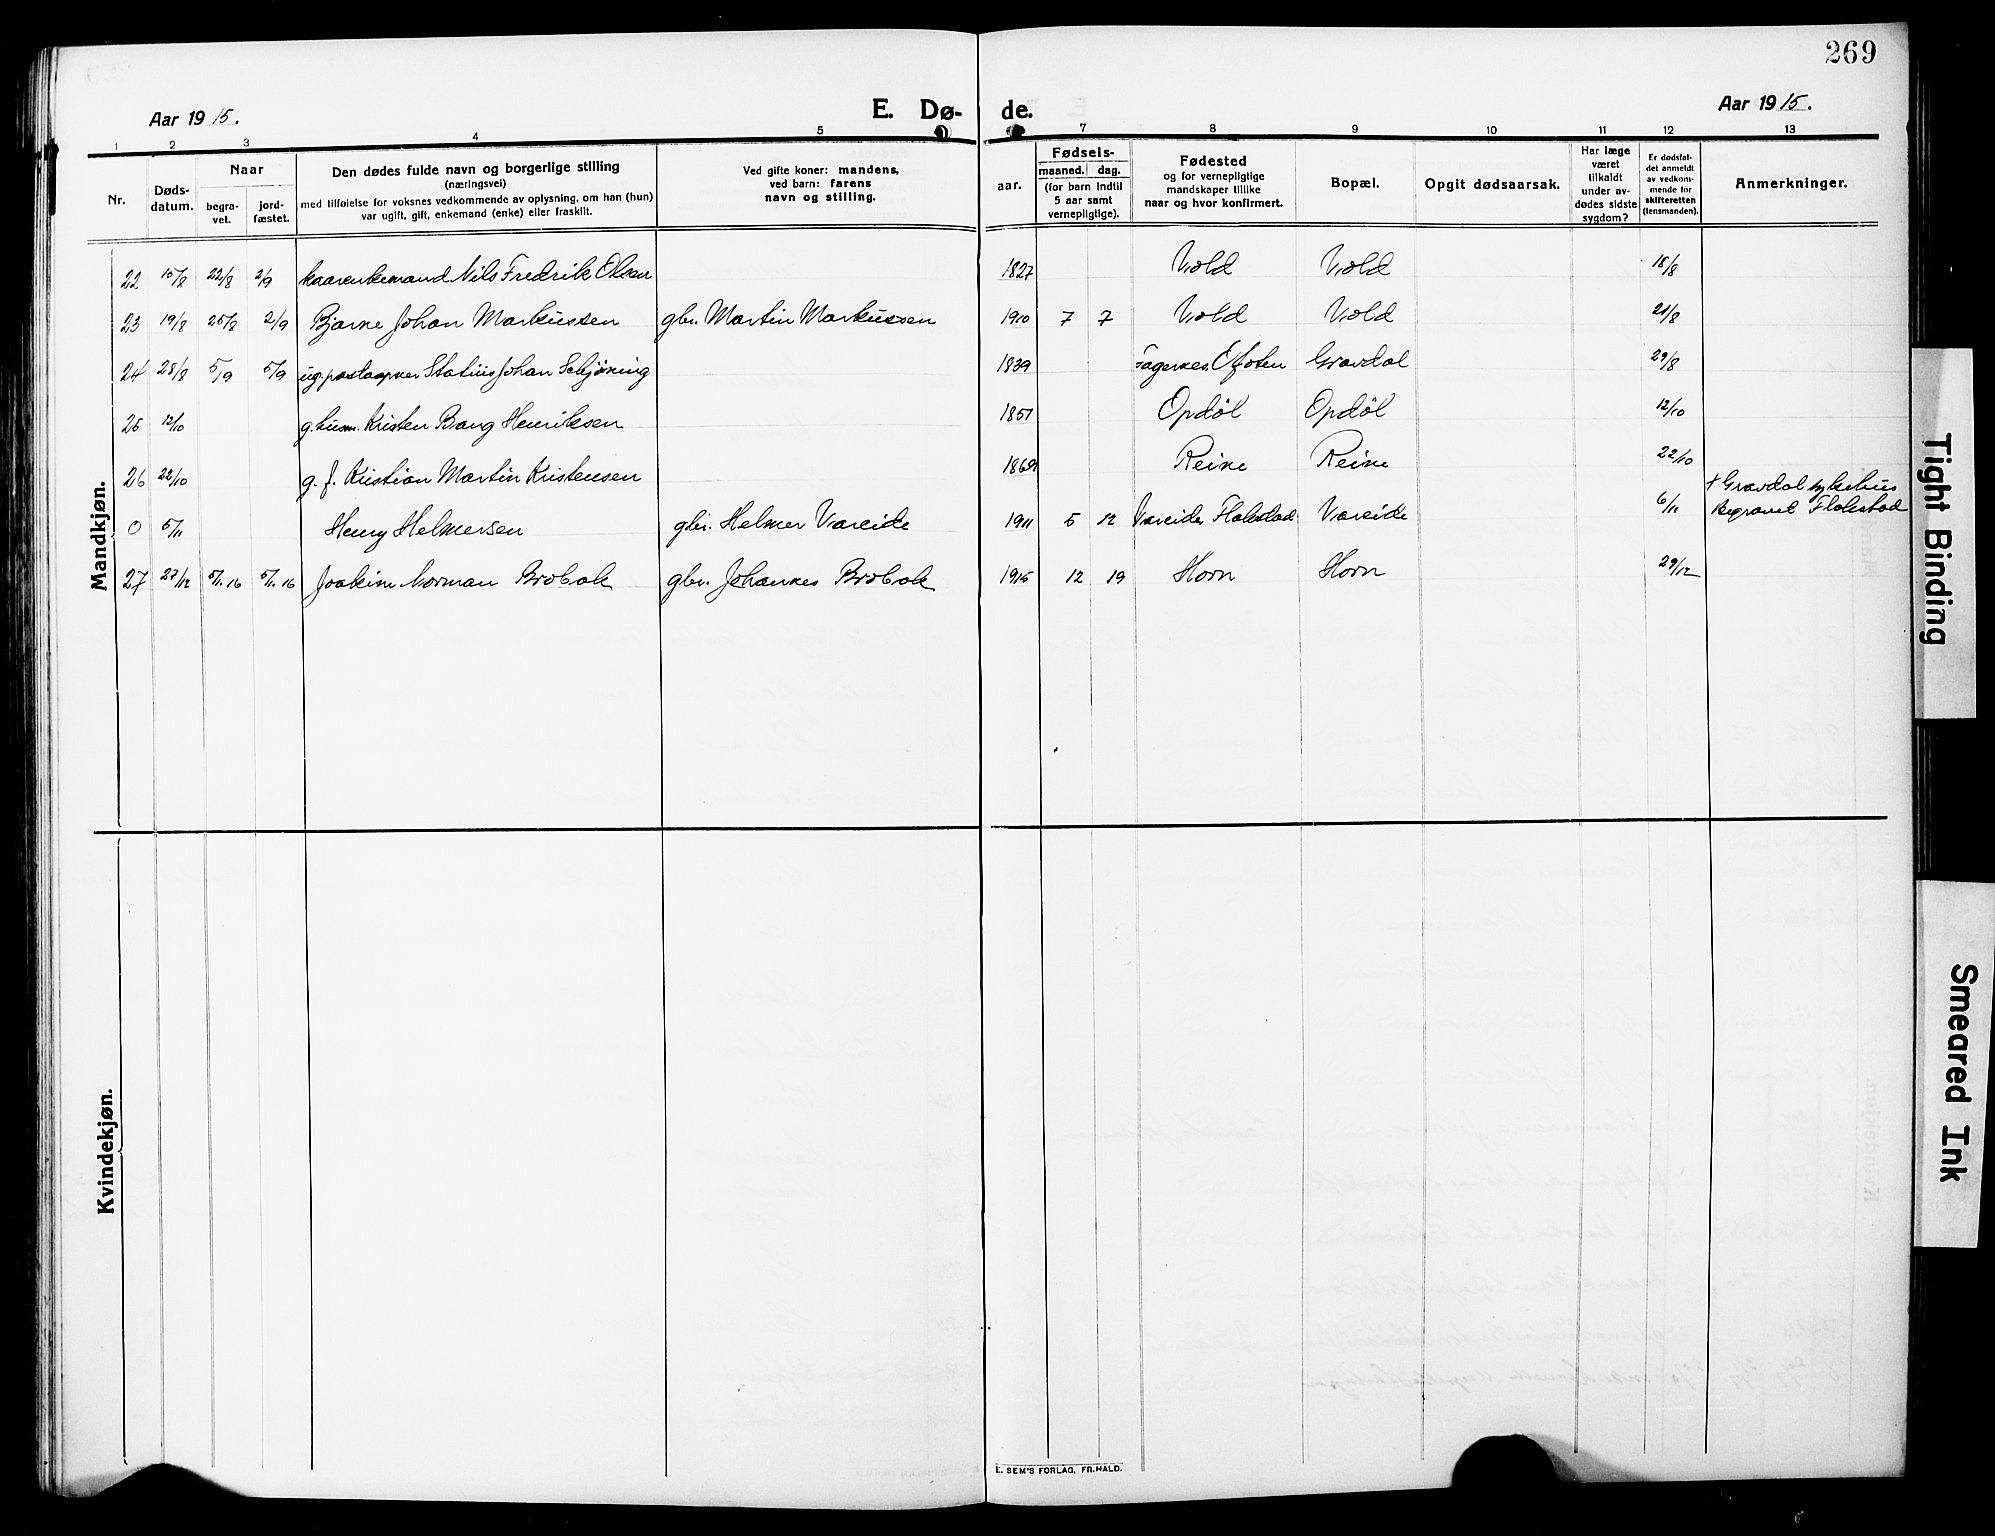 269
Aar 1915. E. Dø- de. Aar 1915.
1 2 3 4 5 7 8 9 10 11 12 13
Nr. Døds-datum. Naar begra-vet. jord-fæstet. Den dødes fulde navn og borgerlige stilling (næringsvei) med tilføielse for voksnes vedkommende av oplysning, om han (hun) var ugift, gift, enkemand (enke) eller fraskilt. Ved gifte koner: mandens, ved barn: farens navn og stilling. aar. Fødsels- maaned. dag. (for barn indtil 5 aar samt vernepligtige). Fødested og for vernepligtige mandskaper tillike naar og hvor konfirmert. Bopæl. Opgit dødsaarsak. Har læge været tilkaldt under av-dødes sidste sygdom? Er dødsfal-det anmeldt av vedkom-mende for skifteretten (lensmanden). Anmerkninger.
Mandkjøn.
22 15/8 22/8 2/9 kaarenkemand Nils Fredrik Olsen 1827 Vold Vold 18/8
23 19/8 25/8 2/9 Bjarne Johan Markussen gbr. Martin Markussen 1910 7 7 Vold Vold 21/8
24 28/8 5/9 5/9 ug. postaapner Statius Johan Schjøning 1839 Fagernes, Ofoten Gravdal 29/8
25 12/10 g. husm. Kristen Bang Henriksen 1851 Opdøl Opdøl 12/10
26 22/10 g. f. Kristian Martin Kristensen 1869 Reine Reine 22/10
† Gravdal sykehus
0 5/11 Henry Helmersen gbr. Helmer Vareide 1911 5 12 Vareide, Flakstad Vareide 6/11 Begravet Flakstad
27 27/12 5/1.16 5/1.16 Joakim Norman Brobak gbr. Johannes Brobak 1915 12 19 Horn Horn 29/12
Kvindekjøn.
E. SEM'S FORLAG, FR.HALD.
Tight Binding
Smeared Ink